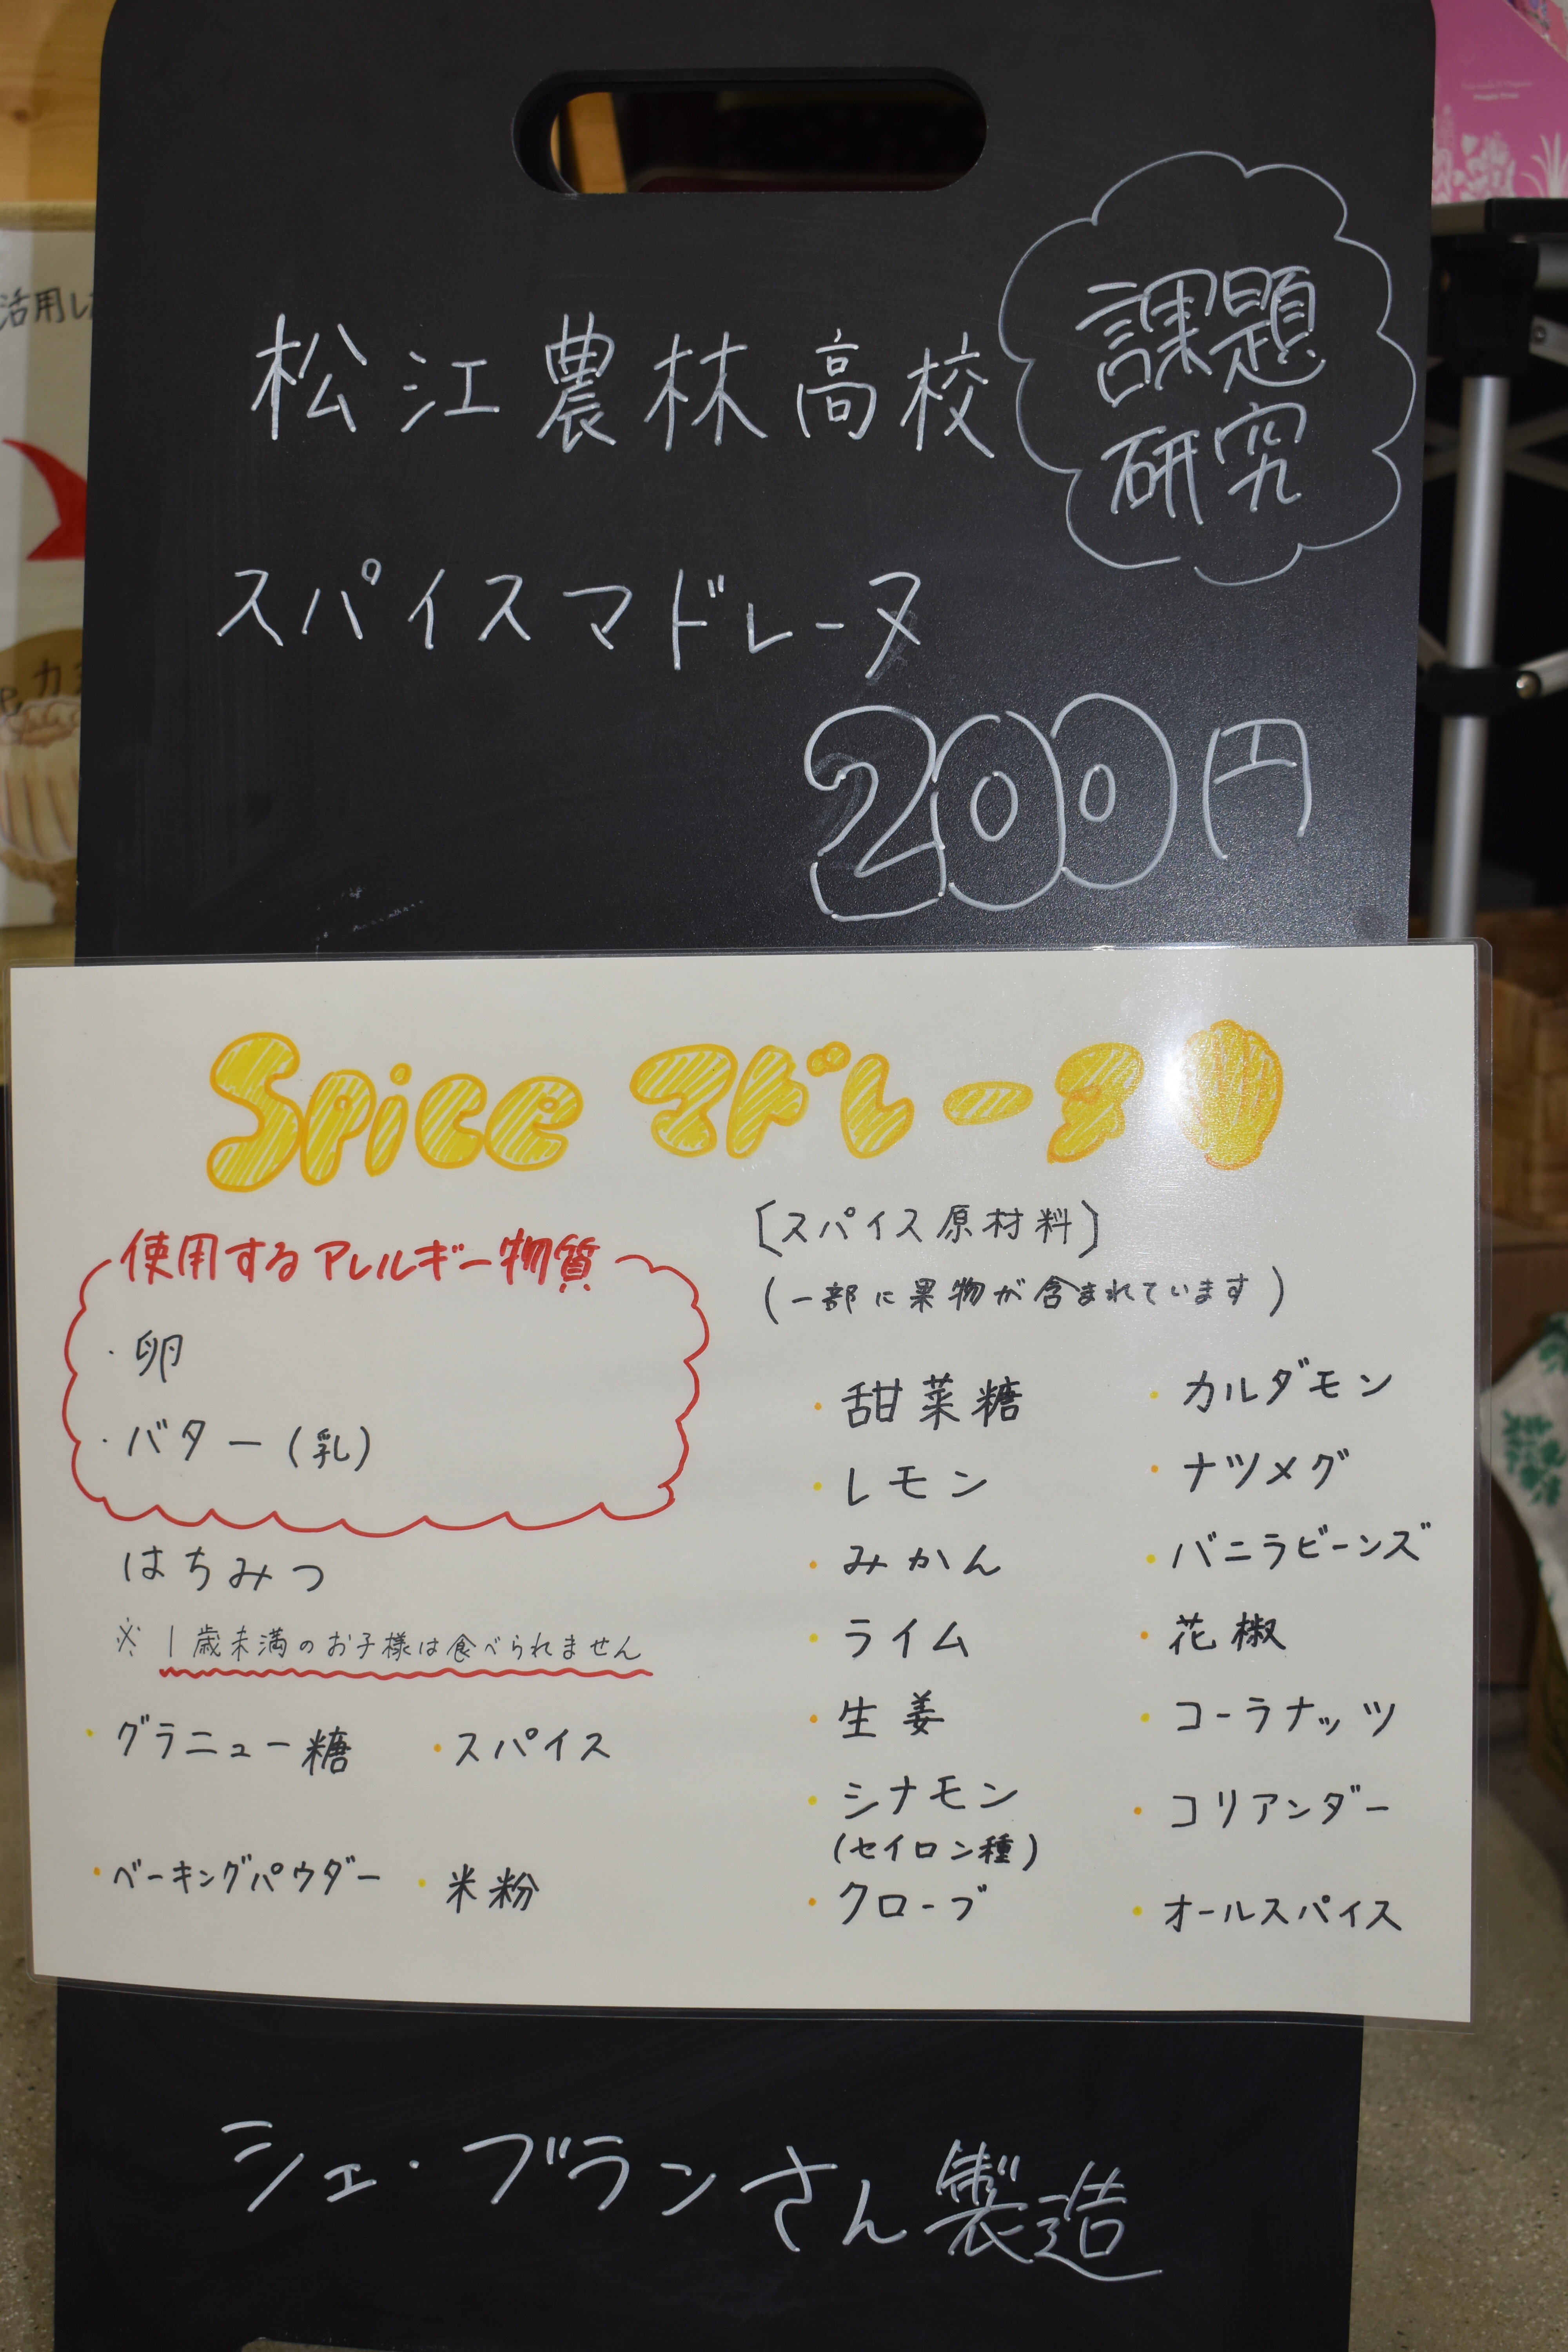 松江農林高校
課題
研究
スパイスマドレーヌ
200円
Spice マドレーヌ
使用するアレルギー物質
・卵
・バター(乳)
はちみつ
※1歳未満のお子様は食べられません
・グラニュー糖 ・スパイス
・ベーキングパウダー ・米粉
[スパイス原材料]
(一部に果物が含まれています)
・甜菜糖
・レモン
・みかん
・ライム
・生姜
・シナモン
(セイロン種)
・クローブ
・カルダモン
・ナツメグ
・バニラビーンズ
・花椒
・コーラナッツ
・コリアンダー
・オールスパイス
シェ・ブランさん製造
活用し